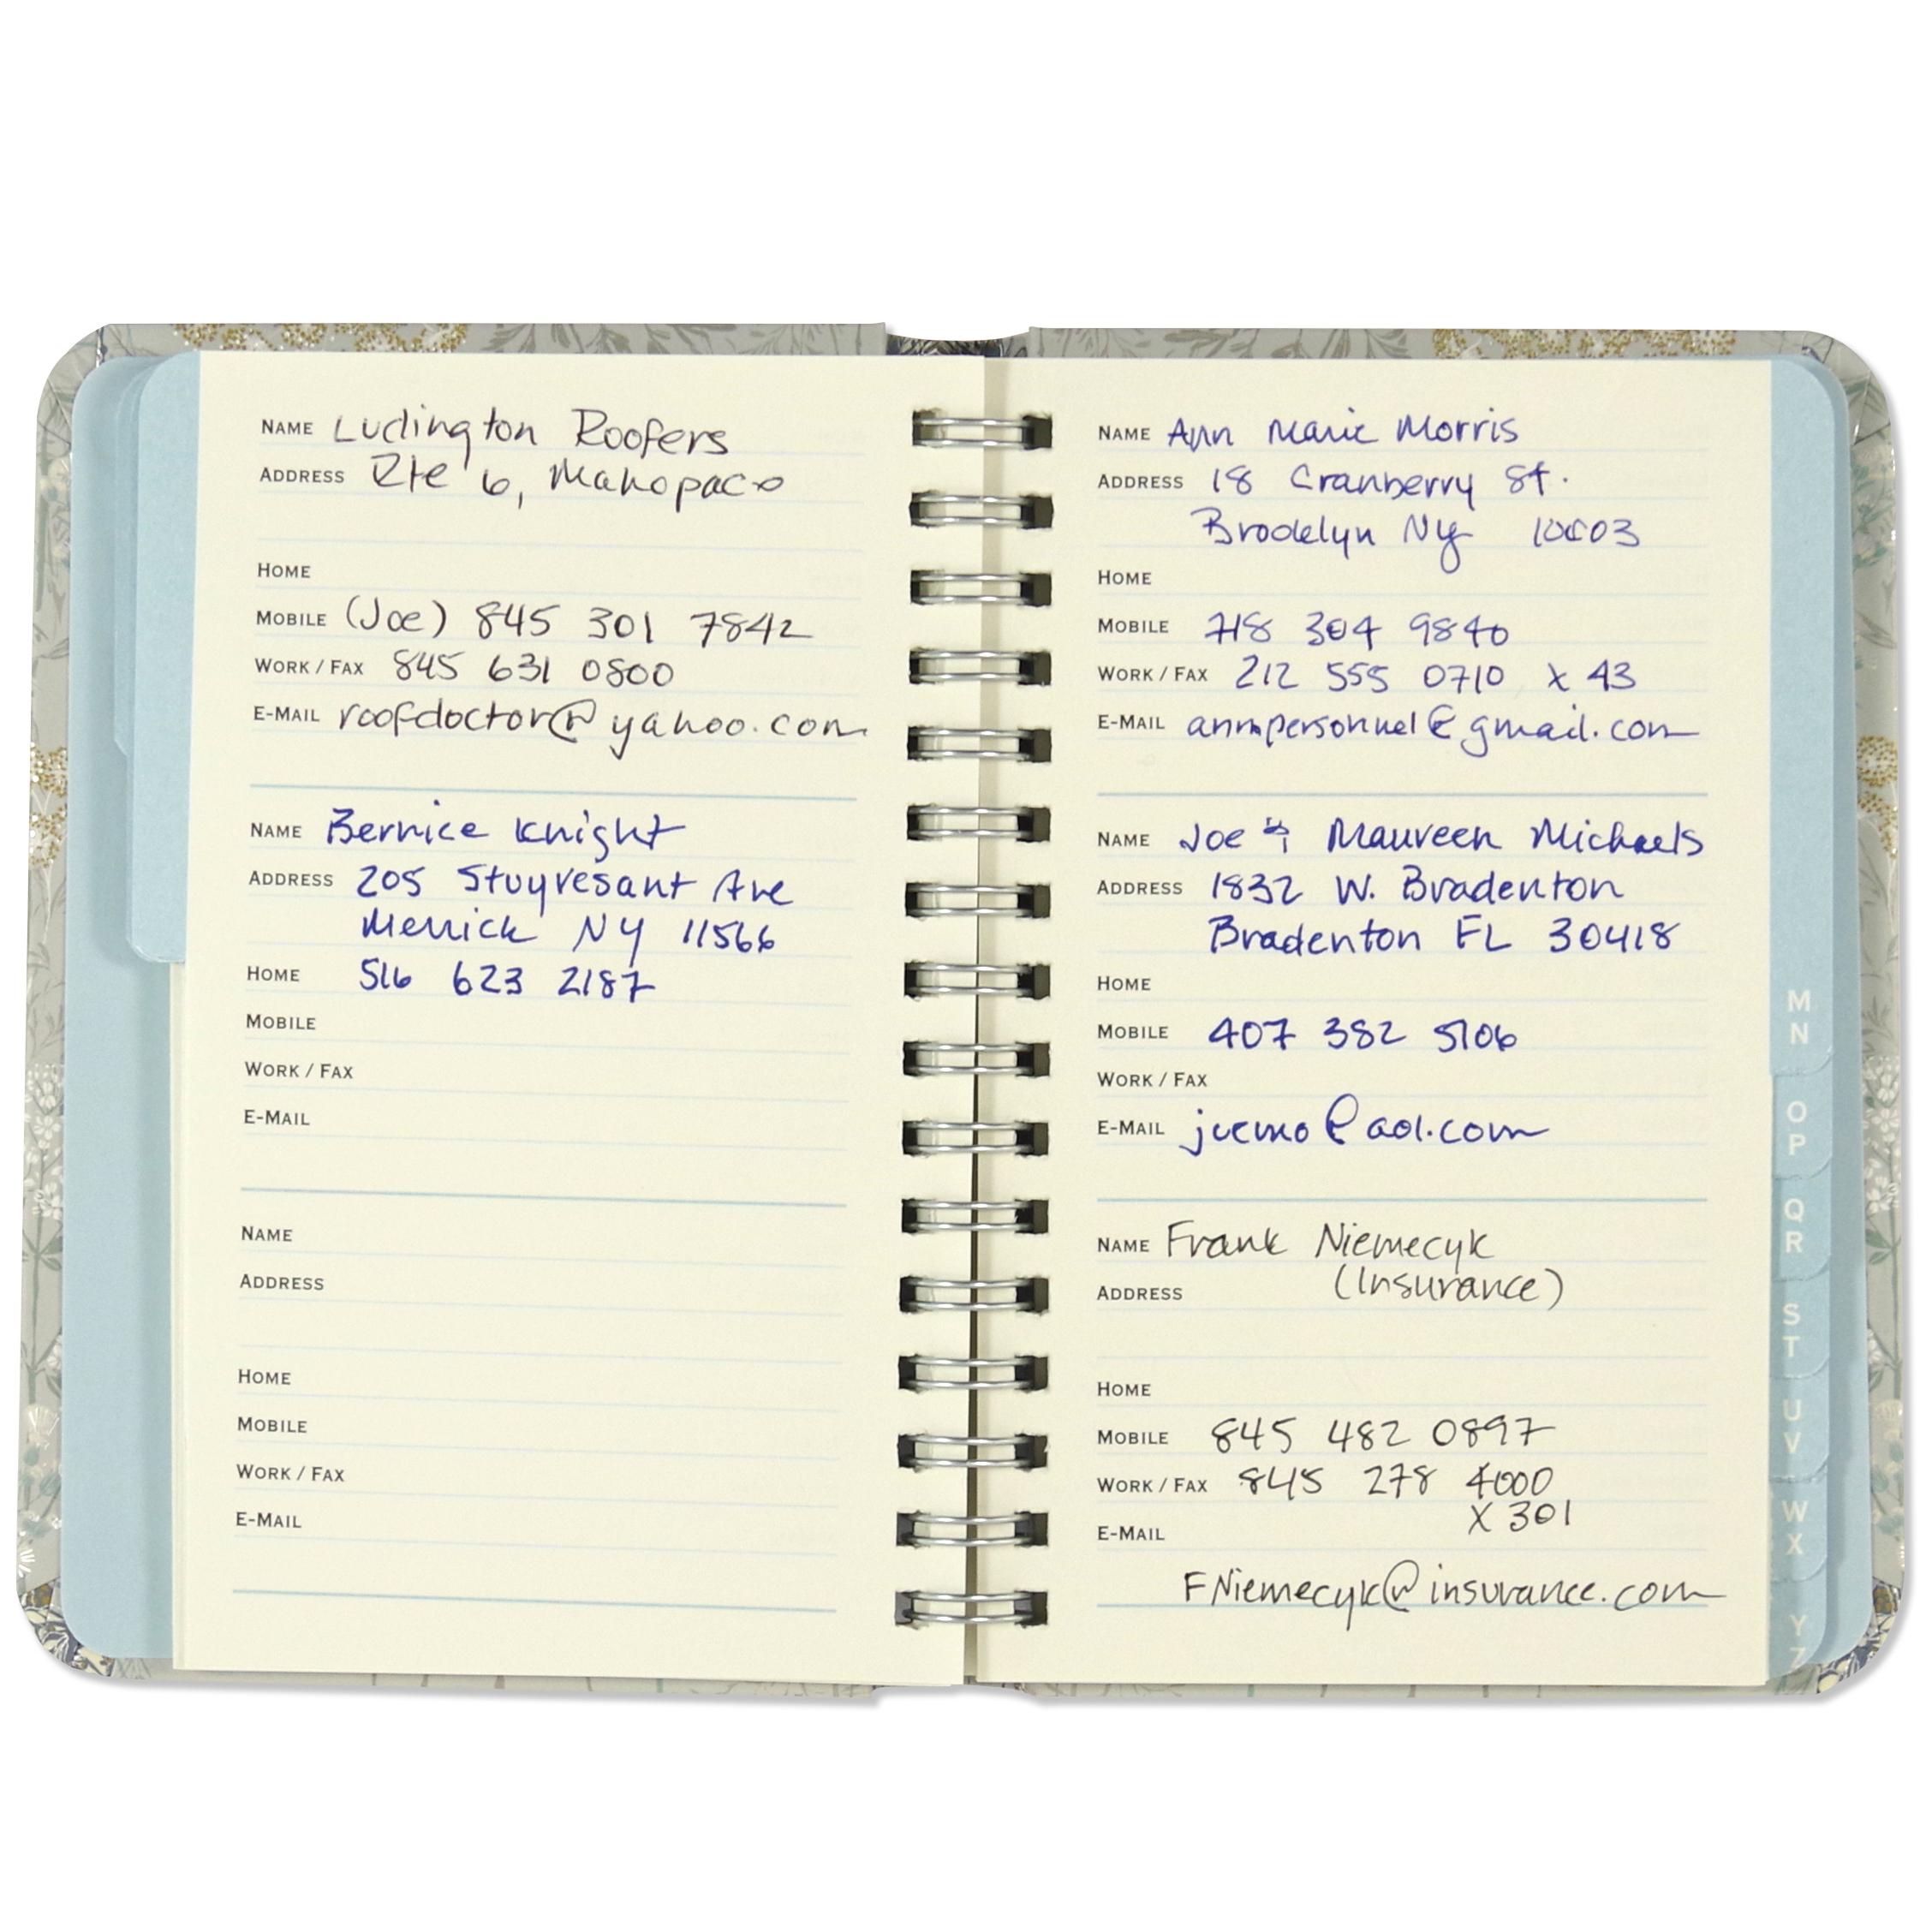 NAME Ludington Roofers
ADDRESS Rte 6, Mahopac
HOME
MOBILE (Joe) 845 301 7842
WORK / FAX 845 631 0800
E-MAIL roofdoctor@yahoo.com
NAME Bernice Knight
ADDRESS 205 Stuyvesant Ave
Merrick NY 11566
HOME 516 623 2187
MOBILE
WORK / FAX
E-MAIL
NAME
ADDRESS
HOME
MOBILE
WORK / FAX
E-MAIL
NAME Ann Marie Morris
ADDRESS 18 Cranberry St.
Brooklyn NY
HOME
MOBILE 718 304 9840
WORK / FAX 212 555 0710 x 43
E-MAIL annmpersonnel@gmail.com
NAME Joe & Maureen Michaels
ADDRESS 1832 W. Bradenton
Bradenton FL 30418
HOME
MOBILE 407 382 5106
WORK / FAX
E-MAIL joemo@aol.com
NAME Frank Niemecyk
ADDRESS (Insurance)
HOME
MOBILE 845 482 0897
WORK / FAX 845 278 4000
X 301
E-MAIL
FNiemecyk@insurance.com
M
N
O
P
Q
R
S
T
U
V
W
X
Y
Z